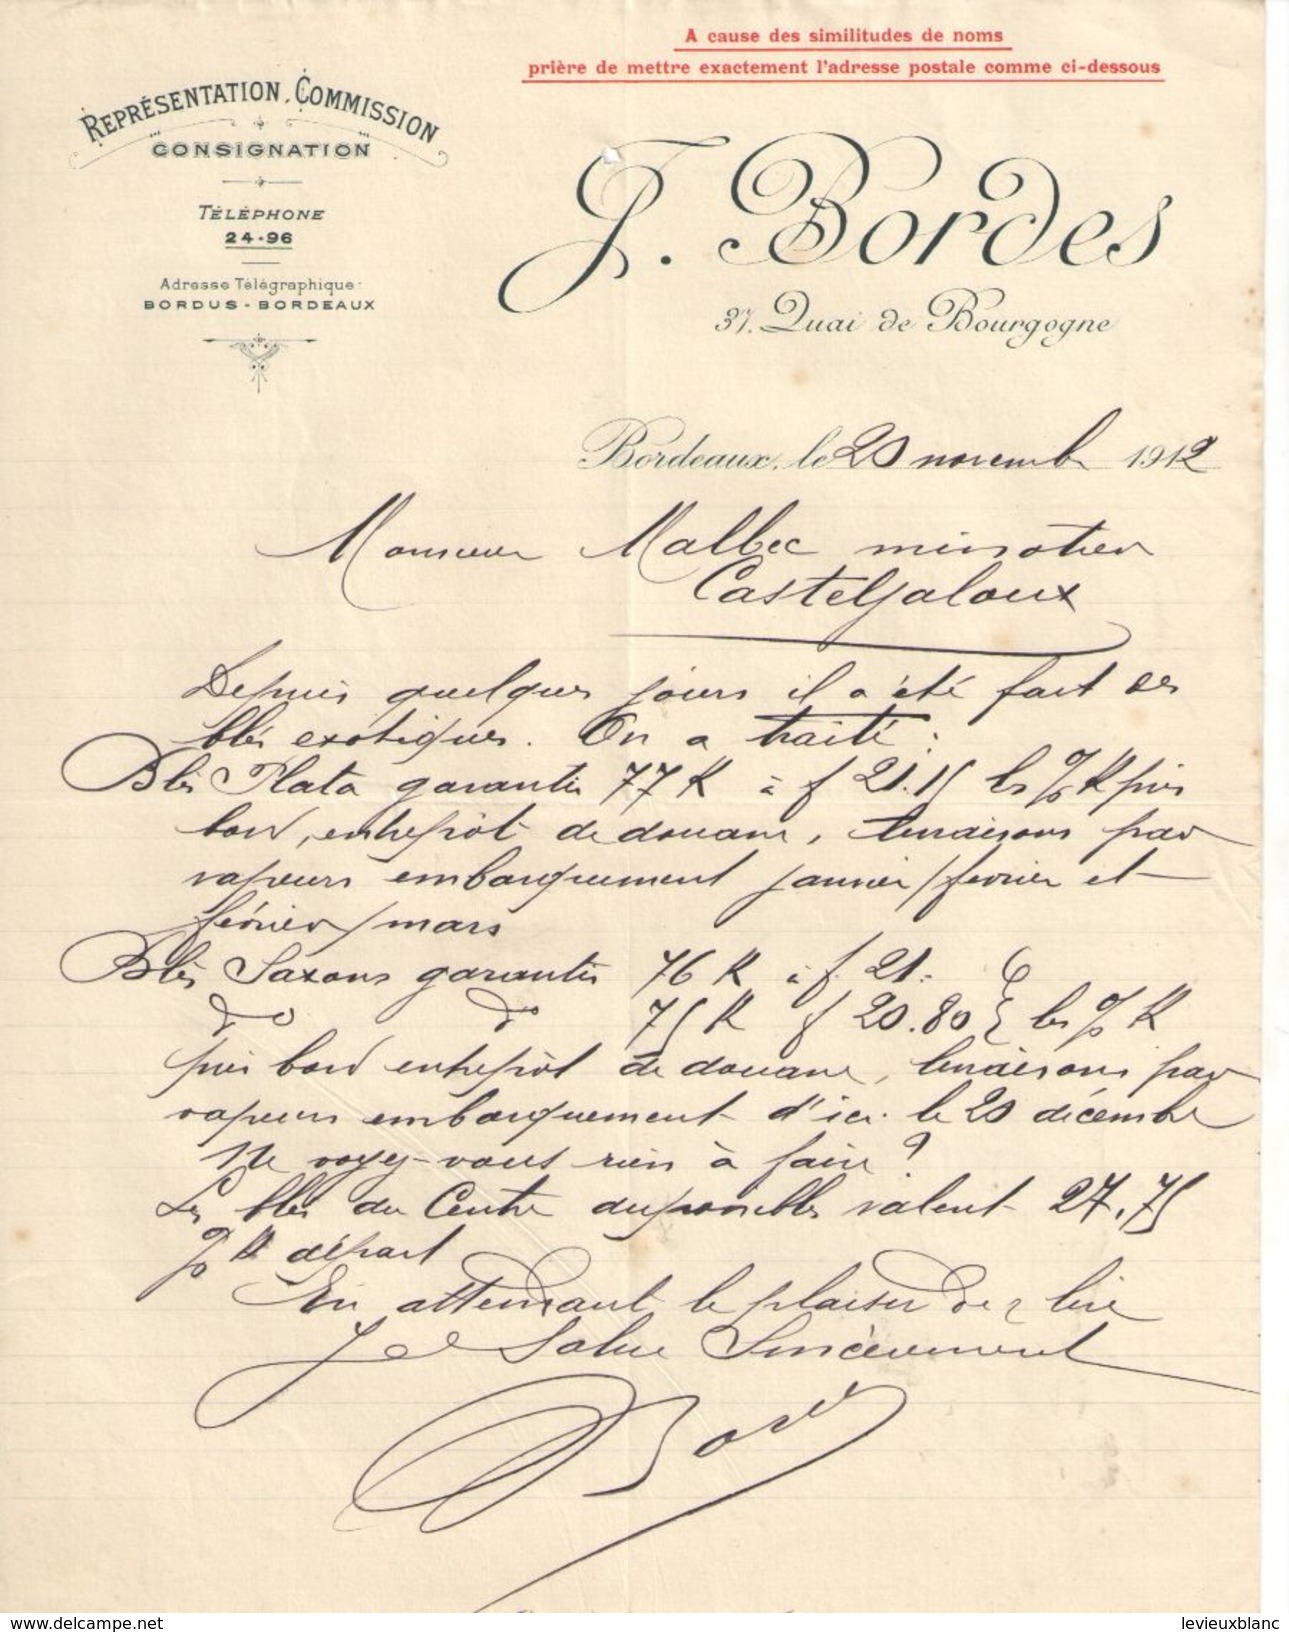 A cause des similitudes de noms
prière de mettre exactement l'adresse postale comme ci-dessous
REPRÉSENTATION, COMMISSION
CONSIGNATION
TÉLÉPHONE
24-96
Adresse Télégraphique:
BORDUS - BORDEAUX
J. Bordes
37, Quai de Bourgogne
Bordeaux, le 20 novembre 1912
Monsieur Malbec minotier
Casteljaloux
Depuis quelques jours il a été fait des
blés exotiques. On a traité:
Blés Plata garantis 77 K à f 21.15 les % K pris
bord, entrepôt de douane, livraisons par
vapeurs embarquement janvier/février et
février/mars
Blés Saxons garantis 76 K à f. 21.
do do 75 K f 20.80 les % K
pris bord entrepôt de douane, livraisons par
vapeurs embarquement d'ici le 20 décembre
Ne voyez-vous rien à faire?
Les blés du Centre disponibles valent 27,75
% K départ
En attendant le plaisir de v lire
Je v salue Sincèrement
Bordes
delcampe.net
levieuxblanc